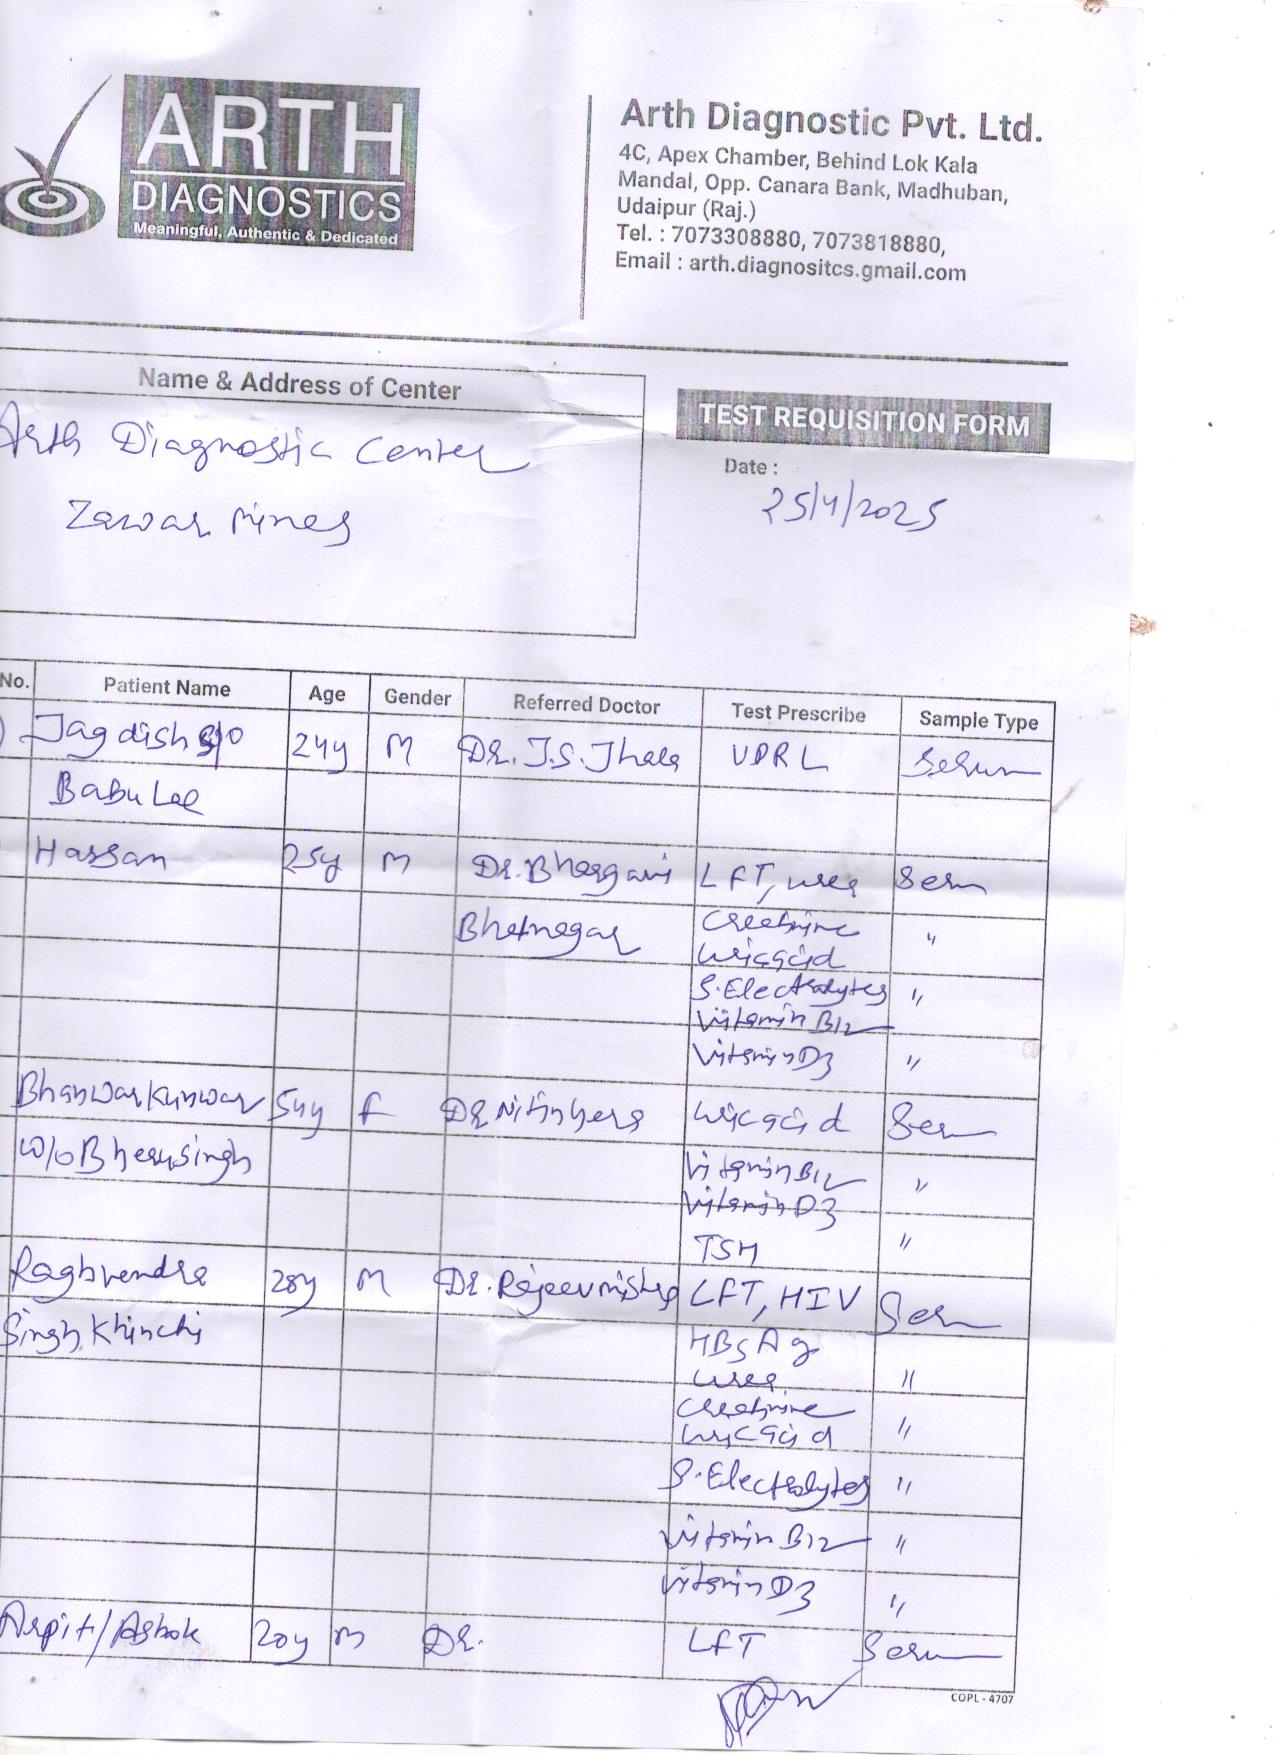 ARTH
DIAGNOSTICS
Meaningful, Authentic & Dedicated
Arth Diagnostic Pvt. Ltd.
4C, Apex Chamber, Behind Lok Kala
Mandal, Opp. Canara Bank, Madhuban,
Udaipur (Raj.)
Tel. : 7073308880, 7073818880,
Email : arth.diagnositcs.gmail.com
Name & Address of Center
Arth Diagnostic Center
Zawar Mines
TEST REQUISITION FORM
Date :
25/4/2025
No. Patient Name Age Gender Referred Doctor Test Prescribe Sample Type
Jagdish S/o 24y M Dr. J.S. Jhala VDRL Serum
Babu Lal
Hassan 25y M Dr. Bhargavi LFT, urea Serum
Bhatnagar Creatinine "
uric acid
S. Electrolytes "
Vitamin B12
Vitamin D3 "
Bhanwar Kunwar 54y F Dr Nitin uric acid Serum
W/o Bherusingh Vitamin B12 "
Vitamin D3
TSH "
Raghvendra 28y M Dr. Rajeev mishra LFT, HIV Serum
Singh Khinchi HBsAg
urea "
Creatinine
uric acid "
S. Electrolytes "
Vitamin B12 "
Vitamin D3 "
Arpit/Ashok 20y M Dr. LFT Serum
COPL - 4707